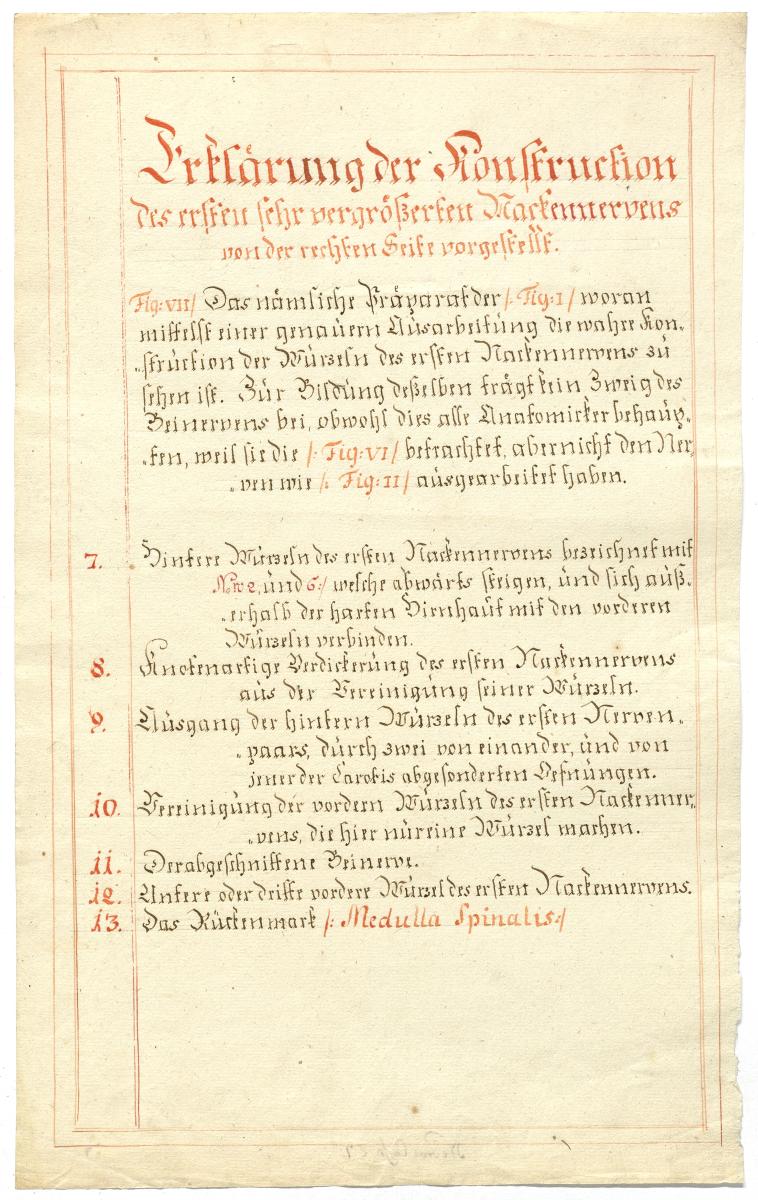 Erklärung der Konstruction
des ersten sehr vergrößerten Nackennervens
von der rechten Seite vorgestellt.
Fig: VII/ Das nämliche Präparat der /: Fig: I / woran
mittelst einer genauern Ausarbeitung die wahre Kon„
„struction der Würzeln des ersten Nackennervens zü
sehen ist. Zür Bildüng deßelben trägt kein Zweig des
Beinervens bei, obwohl dies alle Anatomicker behaüp„
„ten, weil sie die /: Fig: VI / betrachtet, aber nicht den Ner„
„ven wie /: Fig: II / ausgearbeitet haben.
7. Hintere Würzeln des ersten Nackennervens bezeichnet mit
Nro 2, ünd 6:/ welche abwärts steigen, ünd sich aüß„
„erhalb der harten Hirnhaüt mit den vorderen
Würzeln verbinden.
8. Knotenartige Verdickerüng des ersten Nackennervens
aüs der Vereinigüng seiner Würzeln.
9. Aüsgang der hintern Würzeln des ersten Nerven„
„paars, dürch zwei von einander, ünd von
jener der Carotis abgesonderten Oefnüngen.
10. Vereinigüng der vordern Würzeln des ersten Nackenner„
„vens, die hier nür eine Würzel machen.
11. Der abgeschnittene Beinerve.
12. Untere oder dritte vordere Würzel des ersten Nackennervens.
13. Das Rückenmark /: Medulla Spinalis:/